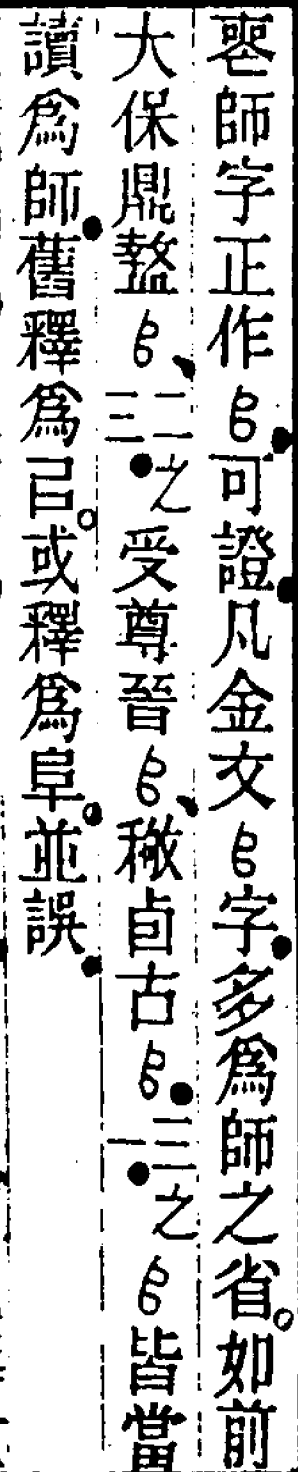 䘮師字正作𠂤可證凡金文𠂤字多爲師之省。如前
大保鼎盩𠂤、二之三受尊晉𠂤、卣古𠂤三之一𠂤皆當
讀爲師舊釋爲㠯。或釋爲阜並誤